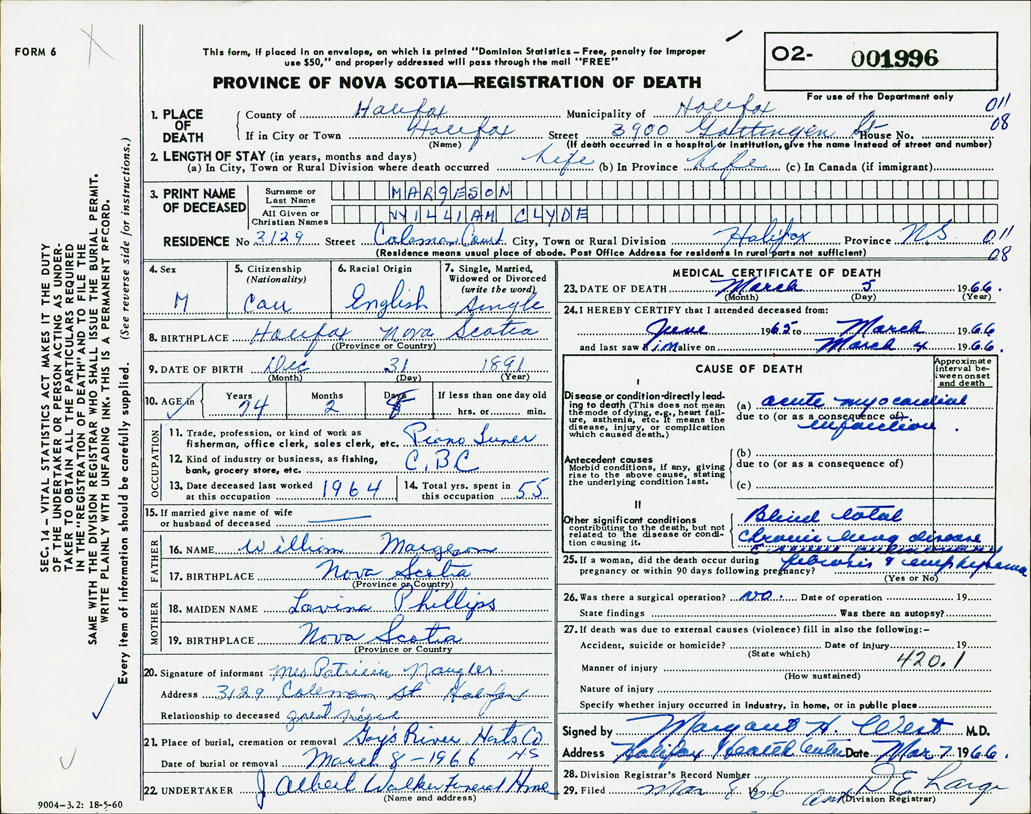 FORM 6
This form, if placed in an envelope, on which is printed "Dominion Statistics – Free, penalty for improper
use $50," and properly addressed will pass through the mail "FREE"
PROVINCE OF NOVA SCOTIA—REGISTRATION OF DEATH
O2- 001996
For use of the Department only
1. PLACE OF DEATH
County of Halifax Municipality of Halifax 011
If in City or Town Halifax Street 3900 Gottingen St House No. 08
(Name) (If death occurred in a hospital or institution, give the name instead of street and number)
2. LENGTH OF STAY (in years, months and days)
(a) In City, Town or Rural Division where death occurred life (b) In Province life (c) In Canada (if immigrant)
3. PRINT NAME OF DECEASED
Surname or Last Name MARGESON
All Given or Christian Names WILLIAM CLYDE
RESIDENCE No 3129 Street Coleman Court City, Town or Rural Division Halifax Province N.S 011
(Residence means usual place of abode. Post Office Address for residents in rural parts not sufficient) 08
4. Sex M
5. Citizenship (Nationality) Can
6. Racial Origin English
7. Single, Married, Widowed or Divorced (write the word) Single
8. BIRTHPLACE Halifax Nova Scotia
(Province or Country)
9. DATE OF BIRTH Dec 31 1891
(Month) (Day) (Year)
10. AGE in Years 74 Months 2 Days If less than one day old hrs. or min.
OCCUPATION
11. Trade, profession, or kind of work as
fisherman, office clerk, sales clerk, etc. Piano Tuner
12. Kind of industry or business, as fishing,
bank, grocery store, etc. C.B.C
13. Date deceased last worked at this occupation 1964
14. Total yrs. spent in this occupation 55
15. If married give name of wife
or husband of deceased
FATHER
16. NAME William Margeson
17. BIRTHPLACE Nova Scotia
(Province or Country)
MOTHER
18. MAIDEN NAME Lavina Phillips
19. BIRTHPLACE Nova Scotia
(Province or Country)
20. Signature of informant Mrs Patricia Naugler
Address 3129 Coleman St Halifax
Relationship to deceased great niece
21. Place of burial, cremation or removal Gay's River Hants Co
Date of burial or removal March 8 – 1966 NS
22. UNDERTAKER J Albert Walker Funeral Home
(Name and address)
MEDICAL CERTIFICATE OF DEATH
23. DATE OF DEATH March 5 1966
(Month) (Day) (Year)
24. I HEREBY CERTIFY that I attended deceased from:
June 1965 to March 1966
and last saw him alive on March 4 1966
CAUSE OF DEATH
Approximate interval between onset and death
I
Disease or condition directly leading to death (This does not mean
the mode of dying, e.g., heart failure, asthenia, etc. It means the
disease, injury, or complication which caused death.)
(a) acute myocardial
due to (or as a consequence of)
infarction
Antecedent causes
Morbid conditions, if any, giving rise to the above cause, stating the underlying condition last.
(b)
due to (or as a consequence of)
(c)
II
Other significant conditions
contributing to the death, but not related to the disease or condition causing it.
Blind total
Chronic lung disease
fibrosis & emphysema
25. If a woman, did the death occur during
pregnancy or within 90 days following pregnancy?
(Yes or No)
26. Was there a surgical operation? no. Date of operation 19
State findings Was there an autopsy?
27. If death was due to external causes (violence) fill in also the following:–
Accident, suicide or homicide? Date of injury 19
(State which) 420.1
Manner of injury
(How sustained)
Nature of injury
Specify whether injury occurred in industry, in home, or in public place
Signed by Margaret H. West M.D.
Address Halifax Health Center Date Mar 7. 1966.
28. Division Registrar's Record Number
29. Filed Mar 8 1966 D E Large
(Division Registrar)
SEC. 14 – VITAL STATISTICS ACT MAKES IT THE DUTY
OF THE UNDERTAKER OR PERSON ACTING AS UNDER-
TAKER TO OBTAIN ALL THE PARTICULARS REQUIRED
IN THE "REGISTRATION OF DEATH" AND TO FILE THE
SAME WITH THE DIVISION REGISTRAR WHO SHALL ISSUE THE BURIAL PERMIT.
WRITE PLAINLY WITH UNFADING INK. THIS IS A PERMANENT RECORD.
Every item of information should be carefully supplied. (See reverse side for instructions.)
9004–3.2: 18-5-60